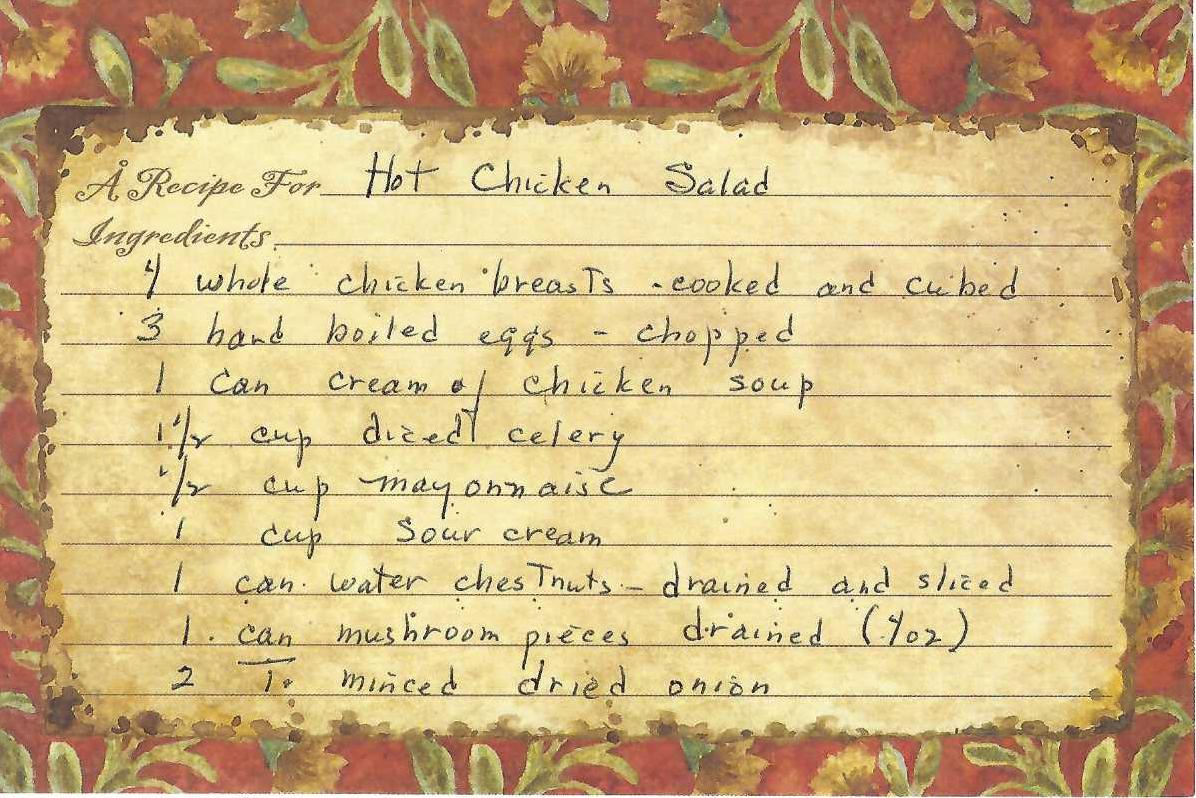 A Recipe For Hot Chicken Salad
Ingredients
4 whole chicken breasts - cooked and cubed
3 hard boiled eggs - chopped
1 can cream of chicken soup
1 1/2 cup diced celery
1/2 cup mayonnaise
1 cup sour cream
1 can water chestnuts - drained and sliced
1 can mushroom pieces drained (4oz)
2 T. minced dried onion